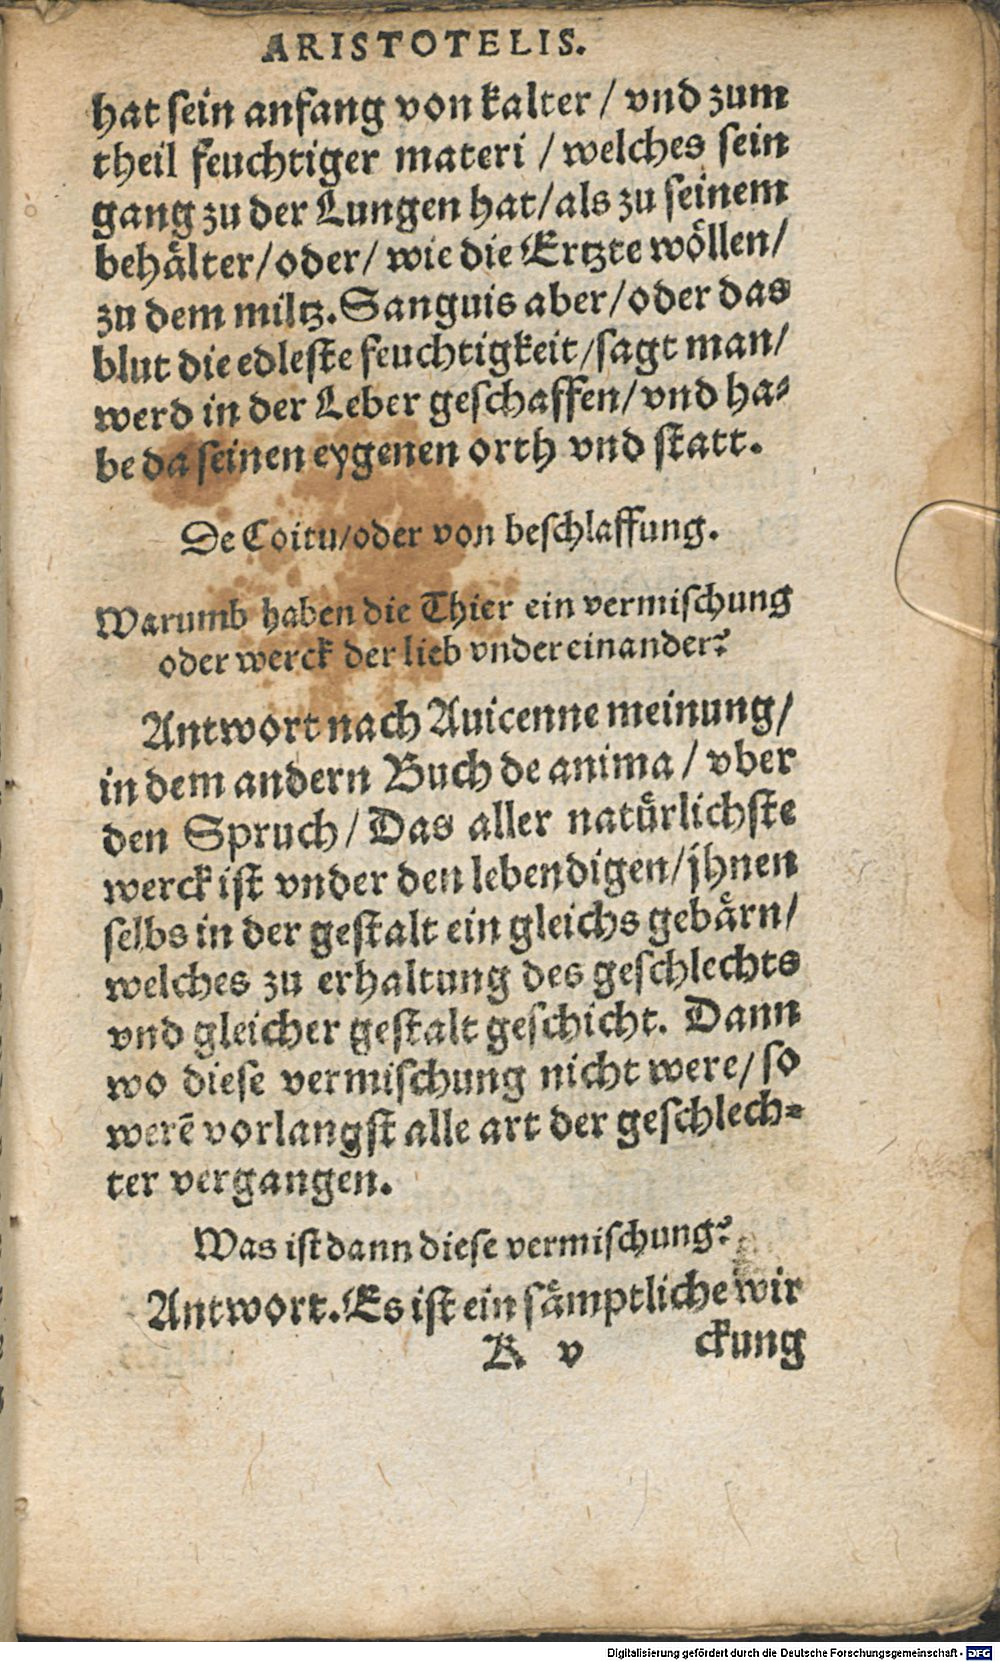 ARISTOTELIS.
hat sein anfang von kalter / vnd zum
theil feuchtiger materi / welches sein
gang zu der Lungen hat/als zu seinem
behälter/oder/ wie die Ertzte wöllen/
zu dem miltz. Sanguis aber/oder das
blut die edleste feuchtigkeit/sagt man/
werd in der Leber geschaffen/vnd ha-
be da seinen eygenen orth vnd statt.
De Coitu/oder von beschlaffung.
Warumb haben die Thier ein vermischung
oder werck der lieb vnder einander?
Antwort nach Auicenne meinung/
in dem andern Buch de anima / vber
den Spruch/ Das aller natürlichste
werck ist vnder den lebendigen/jhnen
selbs in der gestalt ein gleichs gebärn/
welches zu erhaltung des geschlechts
vnd gleicher gestalt geschicht. Dann
wo diese vermischung nicht were/so
werẽ vorlangst alle art der geschlech-
ter vergangen.
Was ist dann diese vermischung?
Antwort. Es ist ein sämptliche wir
K v ckung
Digitalisierung gefördert durch die Deutsche Forschungsgemeinschaft - DFG